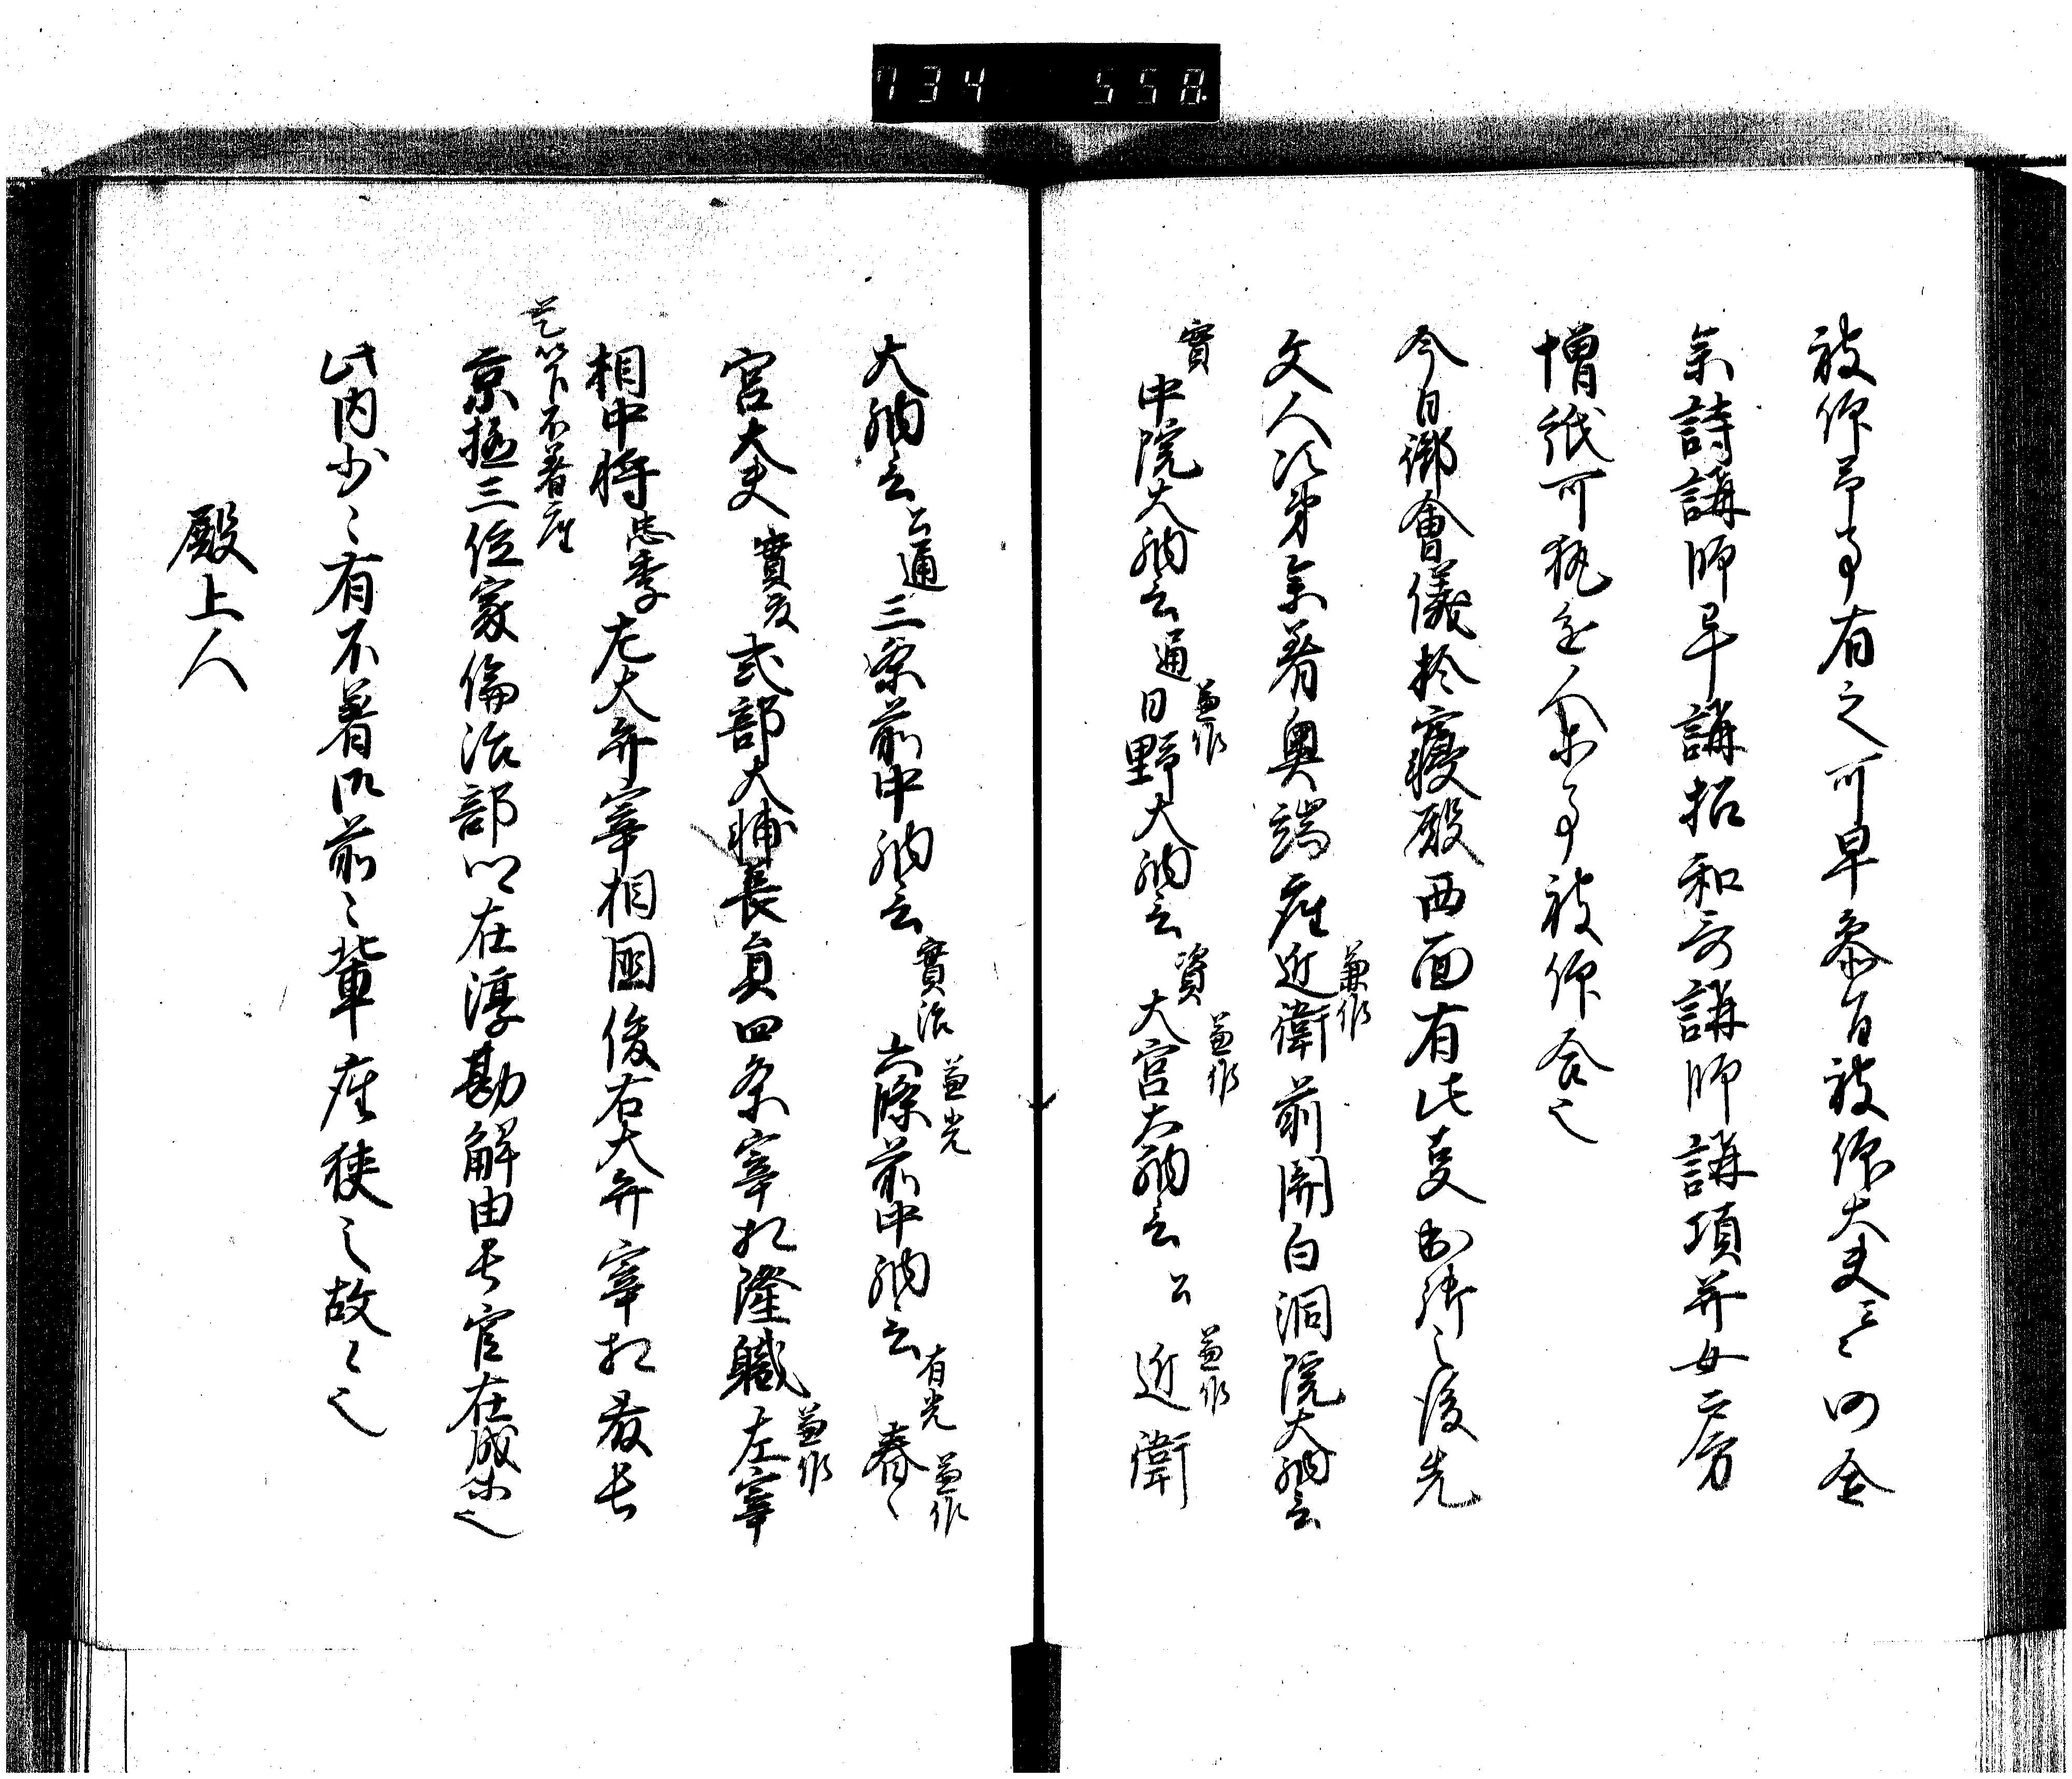 734 558
被仰下事有之可早参自被仰大夫云々仍余
余詩講師早講招和哥講師講頌并女房
憎紙可執之参事被仰含之
今日御會儀於寝殿西面有此事出御之後先
文人次第参着奥端座近衛前関白洞院大納言
兼作
實中院大納言通日野大納言資大宮大納言公近衛
兼作 兼作 兼作
大納言公通三条前中納言實治六條前中納言有光春
兼光 兼作
宮大夫實夏式部大輔長員四条宰相隆職左宰
兼作
相中将忠季左大弁宰相国俊右大弁宰相 長
是以下不着座
京極三位家倫治部卿在淳勘解由長官在成等也
此内少々有不着御前之輩座狭之故云々
殿上人